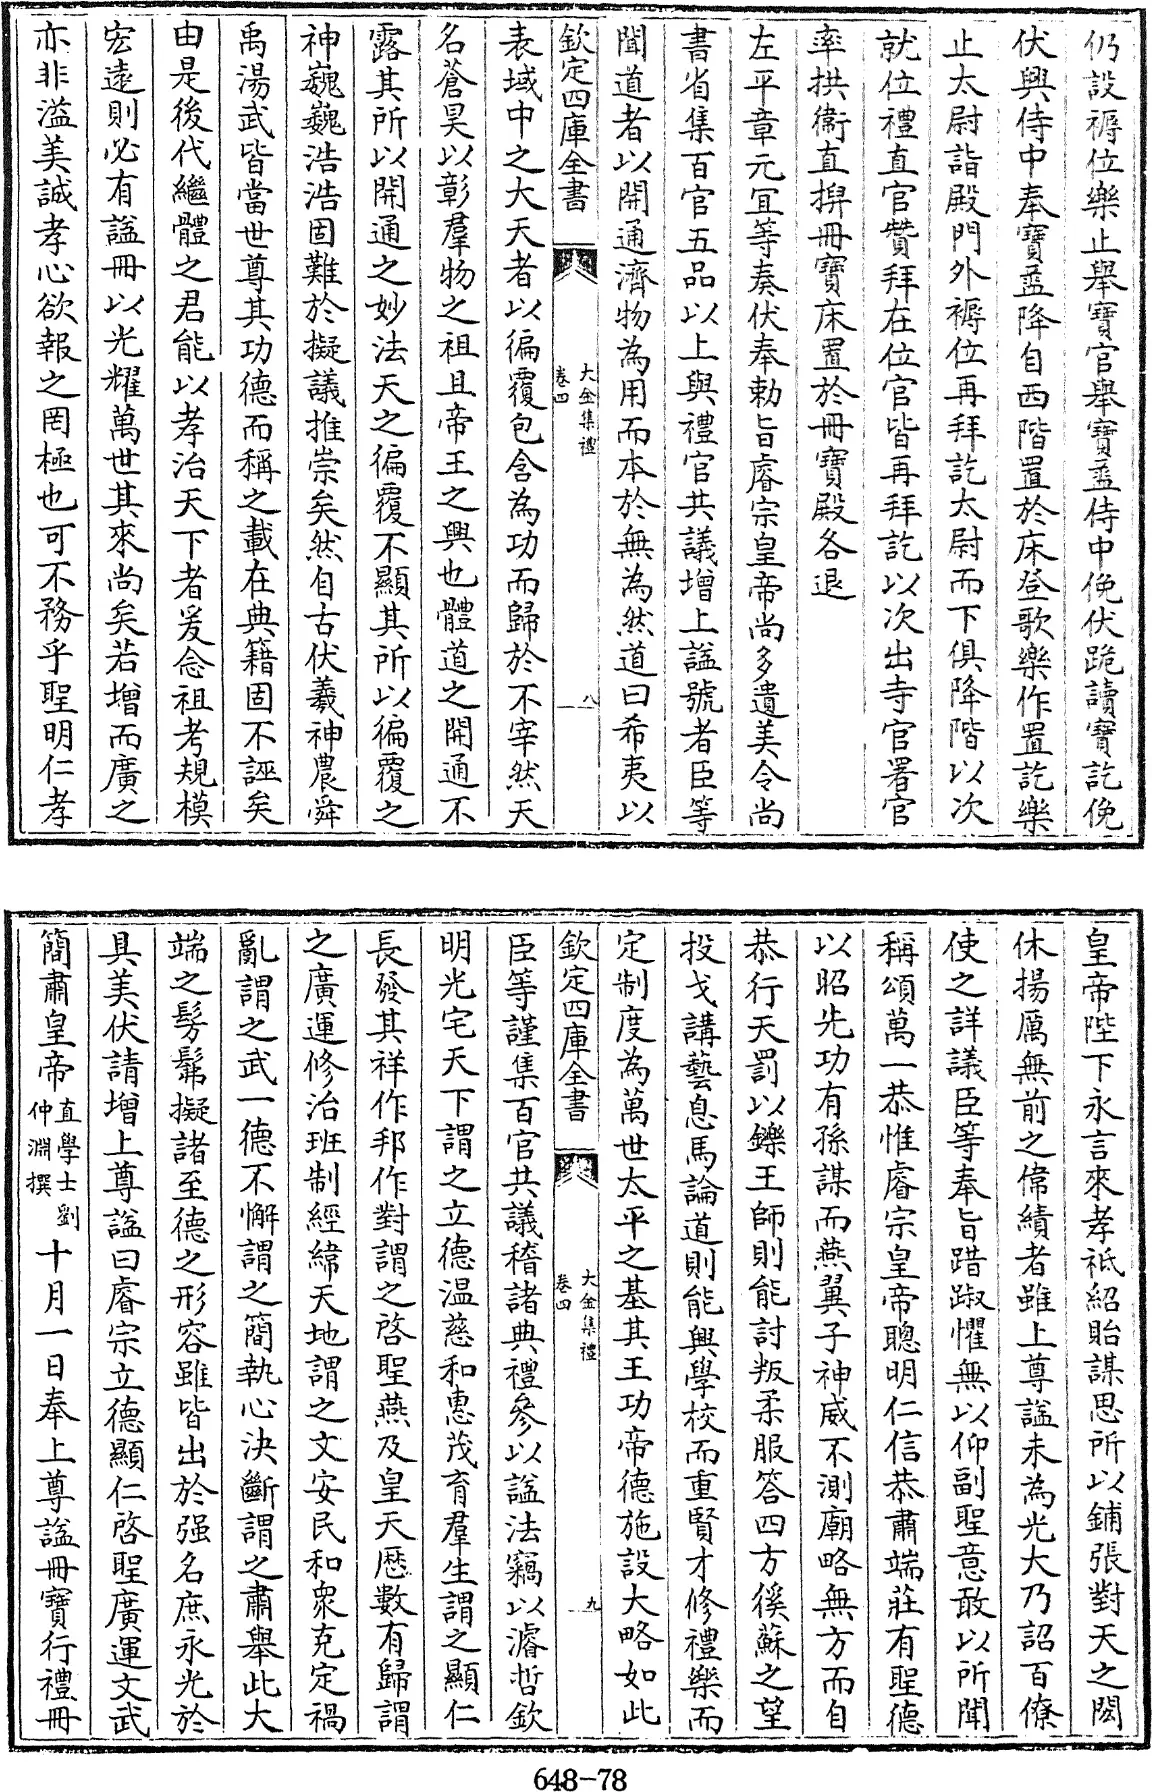 仍設褥位樂止舉寶官舉寶盝侍中俛伏跪讀寶訖俛
伏興侍中奉寶盝降自西階置於床登歌樂作置訖樂
止太尉詣殿門外褥位再拜訖太尉而下俱降階以次
就位禮直官贊拜在位官皆再拜訖以次出寺官署官
率拱衞直捭冊寶床置於冊寶殿各退
左平章元宜等奏伏奉勅旨睿宗皇帝尚多遺美令尚
書省集百官五品以上與禮官共議增上諡號者臣等
聞道者以開通濟物為用而本於無為然道曰希夷以
欽定四庫全書
大金集禮
卷四
八
表域中之大天者以徧覆包含為功而歸於不宰然天
名蒼昊以彰羣物之祖且帝王之興也體道之開通不
露其所以開通之妙法天之徧覆不顯其所以徧覆之
神巍巍浩浩固難於擬議推崇矣然自古伏羲神農舜
禹湯武皆當世尊其功德而稱之載在典籍固不誣矣
由是後代繼體之君能以孝治天下者爰念祖考規模
宏遠則必有諡冊以光耀萬世其來尚矣若增而廣之
亦非溢美誠孝心欲報之罔極也可不務乎聖明仁孝
皇帝陛下永言來孝祇紹貽謀思所以鋪張對天之閎
休揚厲無前之偉績者雖上尊諡未為光大乃詔百僚
使之詳議臣等奉旨踖踧懼無以仰副聖意敢以所聞
稱頌萬一恭惟睿宗皇帝聰明仁信恭肅端莊有聖德
以昭先功有孫謀而燕翼子神威不測廟略無方而自
恭行天罰以鑠王師則能討叛柔服答四方徯蘇之望
投戈講藝息馬論道則能興學校而重賢才修禮樂而
定制度為萬世太平之基其王功帝德施設大略如此
欽定四庫全書
大金集禮
卷四
九
臣等謹集百官共議稽諸典禮參以諡法竊以濬哲欽
明光宅天下謂之立德温慈和惠茂育羣生謂之顯仁
長發其祥作邦作對謂之啓聖燕及皇天厯數有歸謂
之廣運修治班制經緯天地謂之文安民和衆克定禍
亂謂之武一德不懈謂之簡執心決斷謂之肅舉此大
端之髣髴擬諸至德之形容雖皆出於强名庶永光於
具美伏請增上尊諡曰睿宗立德顯仁啓聖廣運文武
簡肅皇帝直學士劉仲淵撰十月一日奉上尊諡冊寶行禮冊
648-78